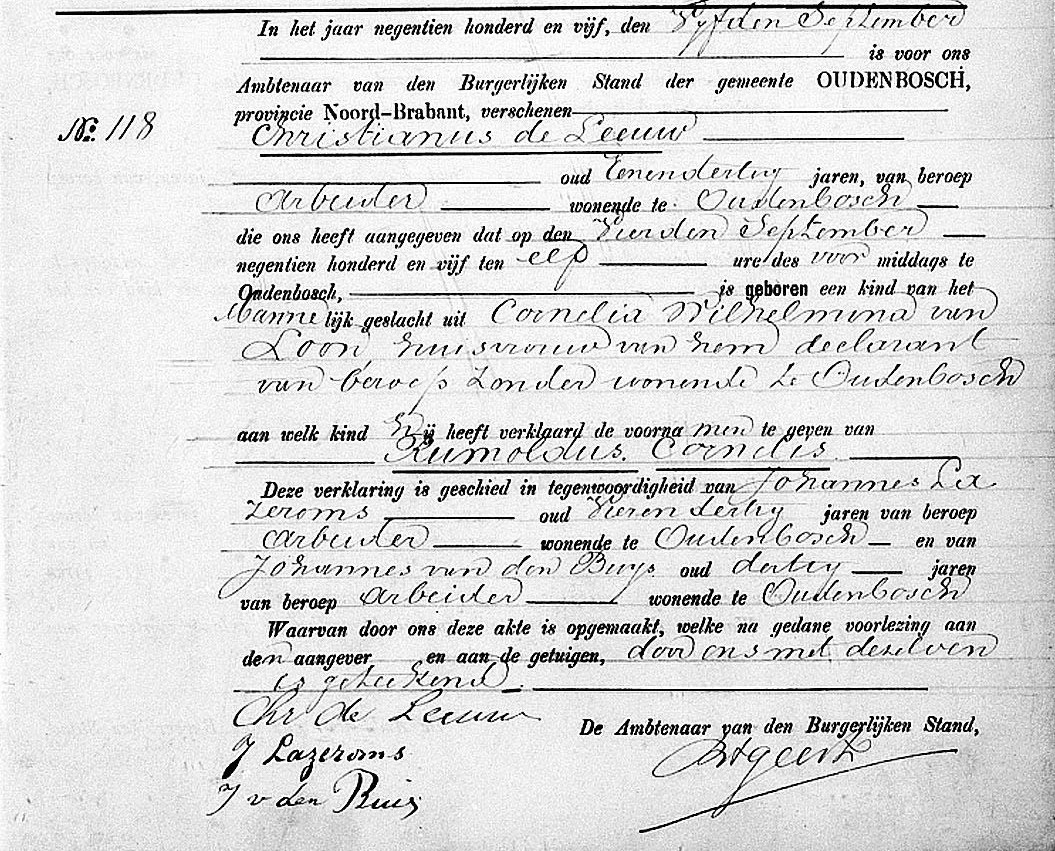 In het jaar negentien honderd en vijf, den Vijfden September
is voor ons
Ambtenaar van den Burgerlijken Stand der gemeente OUDENBOSCH,
provincie Noord-Brabant, verschenen
No. 118
Christianus de Leeuw
oud Eenendertig jaren, van beroep
Arbeider wonende te Oudenbosch
die ons heeft aangegeven dat op den Vierden September
negentien honderd en vijf ten elf ure des voor middags te
Oudenbosch, is geboren een kind van het
Manne lijk geslacht uit Cornelia Wilhelmina van
Loon, huisvrouw van hem declarant
van beroep zonder wonende te Oudenbosch
aan welk kind hij heeft verklaard de voorna men te geven van
Rumoldus Cornelis
Deze verklaring is geschied in tegenwoordigheid van Johannes La
zeroms oud Vierendertig jaren van beroep
Arbeider wonende te Oudenbosch en van
Johannes van den Buys oud dertig jaren
van beroep Arbeider wonende te Oudenbosch
Waarvan door ons deze akte is opgemaakt, welke na gedane voorlezing aan
den aangever en aan de getuigen, door ons met dezelven
is geteekend.
Chr de Leeuw
De Ambtenaar van den Burgerlijken Stand,
J Lazeroms
J v den Buis